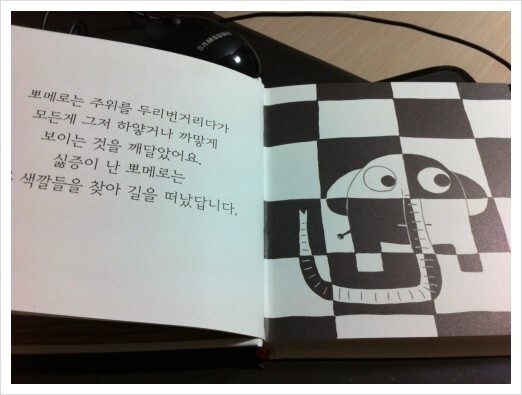 SAMSUNG
뽀메로는 주위를 두리번거리다가
모든게 그저 하얗거나 까맣게
보이는 것을 깨달았어요.
싫증이 난 뽀메로는
색깔들을 찾아 길을 떠났답니다.